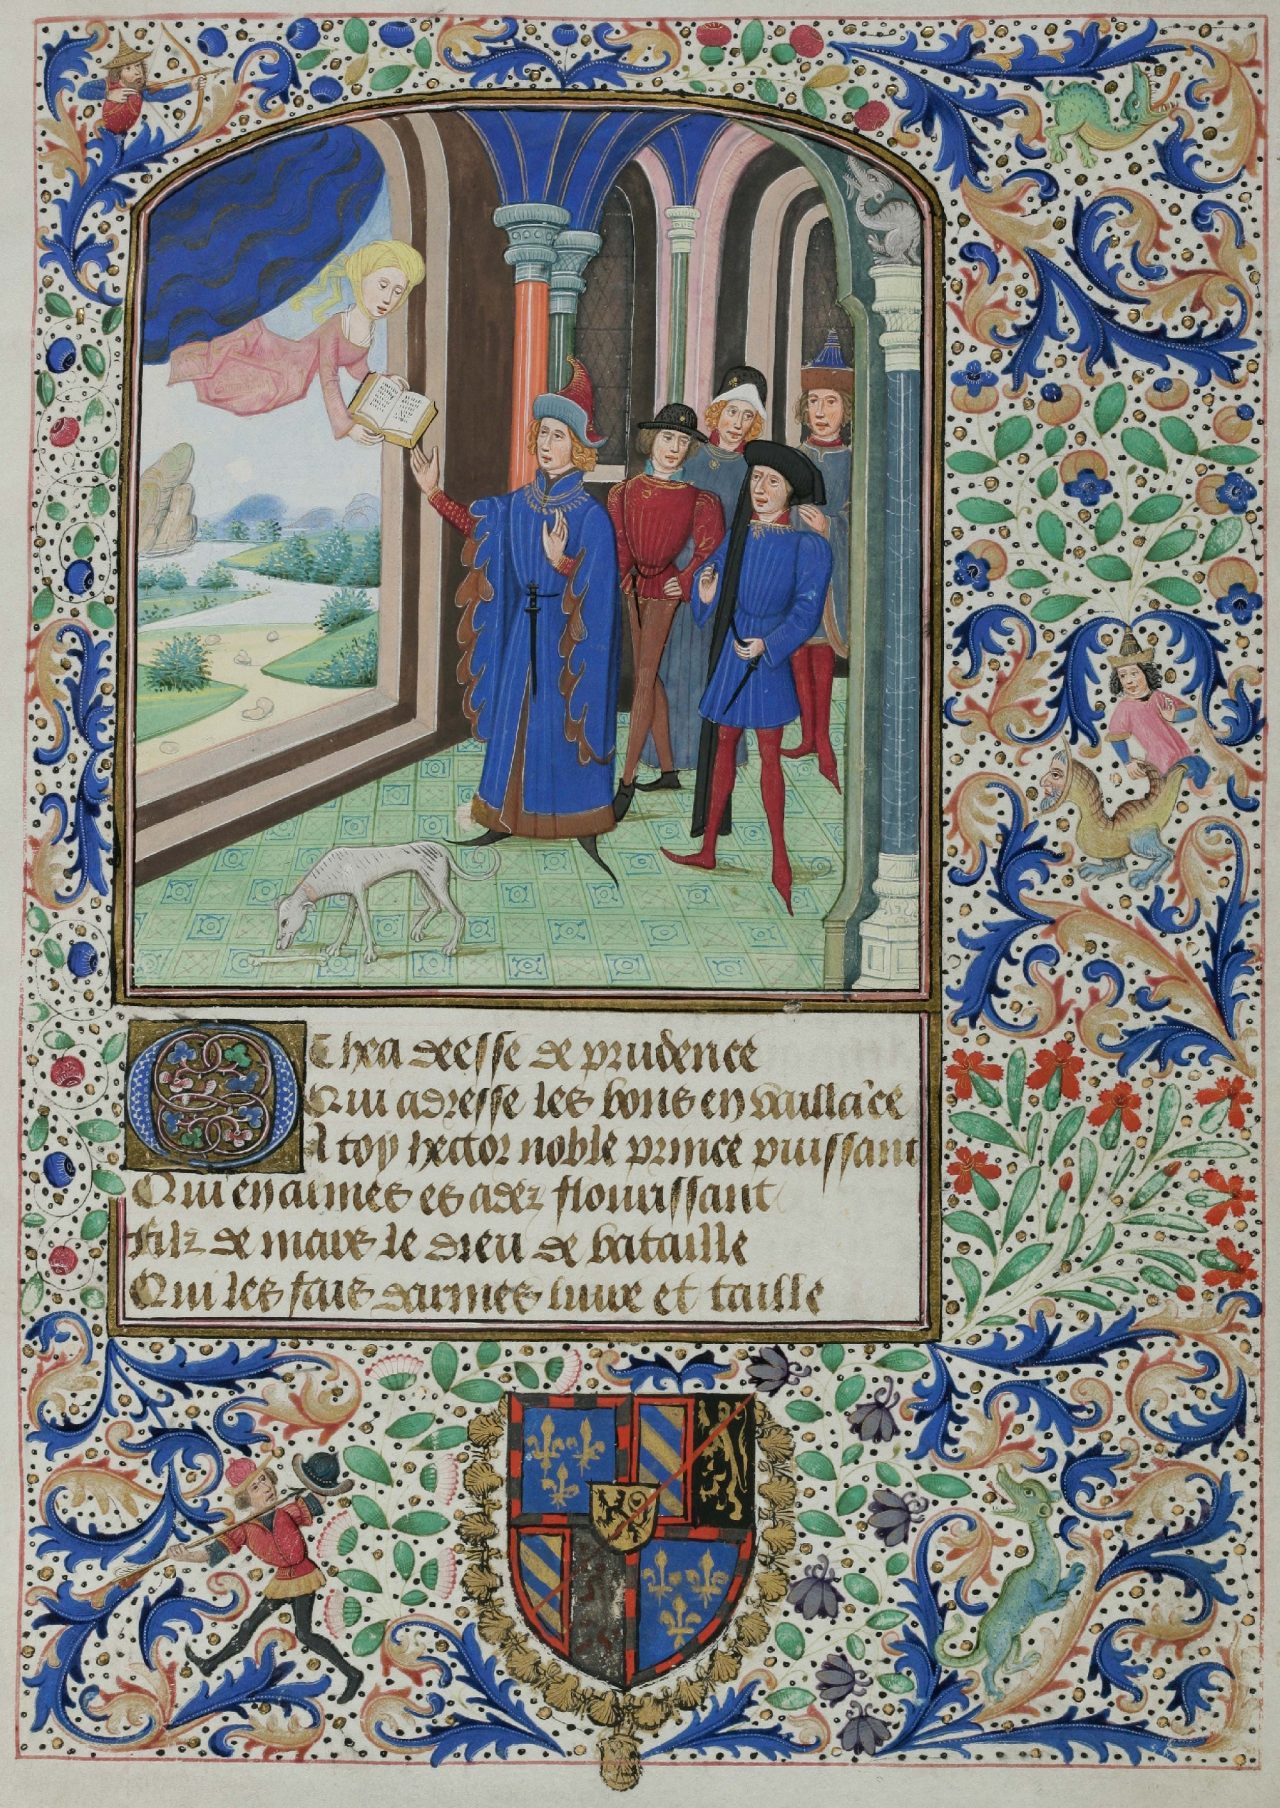 Othea deesse de prudence
Qui adresse les bons en vaillāce
A toy hector noble prince puissant
Qui en armes es adez flourissant
Filz de mars le dieu de bataille
Qui les fais darmes liure et taille